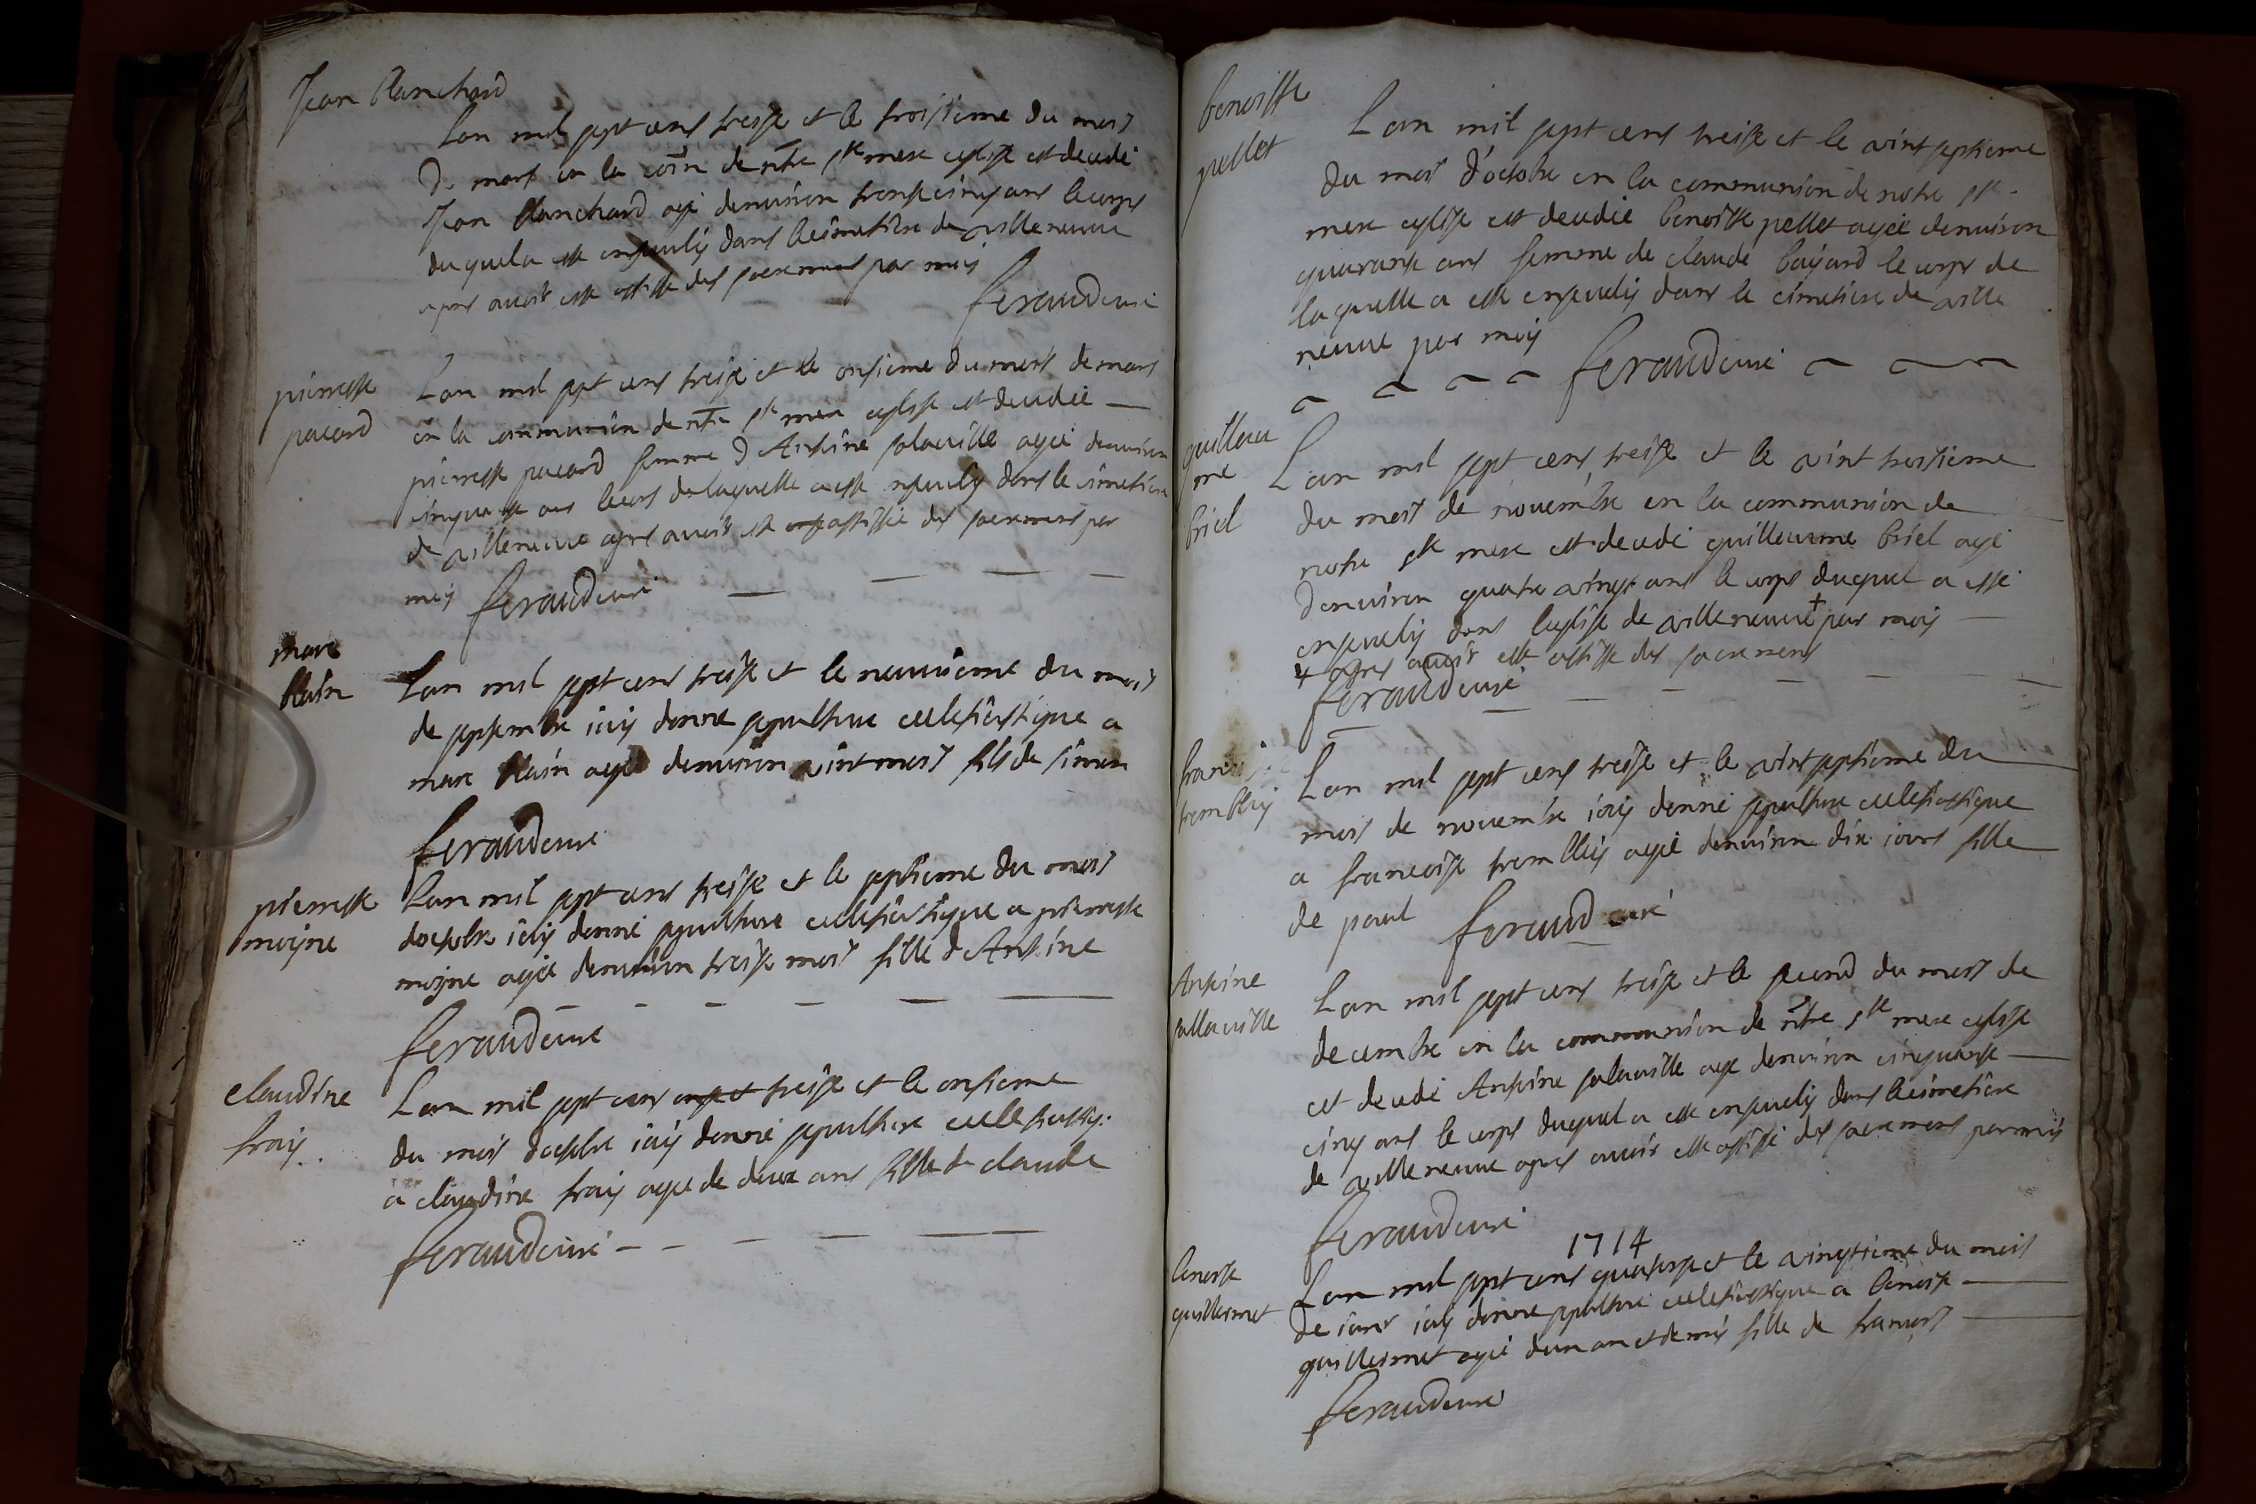 Jean blanchard
Lan mil sept cens treise et le troisieme du mois
de mars en la coïn de ntre ste mere eglise est decedé
Jean blanchard agé denuiron trente cinq ans le corps
duquel a esté enseuely dans le cimetiere de villeneuue
apres auoir esté assisté des sacremens par moy
feraud curé
pierrette
pacard
Lan mil sept cens treise et le onsieme du mois de mars
en la communion de ntre ste mere eglise est decedée
pierrette pacard femme d Antoine salauille agée denuiron
cinquante ans le cors de laquelle a esté enseuely dans le cimetiere
de villeneuue apres auoir esté assistée des sacremens par
moy feraud curé
marc
blain
Lan mil sept cens treise et le neuuieme du mois
de septembre iay donné sepulture ecclesiastique a
marc blain agé denuiron vint mois fils de simon
feraud curé
pierrette
moyne
Lan mil sept cens treise et le septieme du mois
doctobre iay donné sepulture ecclesiastique a pierrette
moyne agée denuiron treise mois fille d Antoine
feraud curé
claudine
frais
Lan mil sept cens treise et le onsieme
du mois doctobre iay donné sepulture ecclesiastiq.
a claudine frais agée de deux ans fille de claude
feraud curé
benoiste
pellet
Lan mil sept cens treise et le vint septieme
du mois d'octobre en la communion de notre ste
mere eglise est decedée benoiste pellet agée denuiron
quarante ans femme de claude bayard le corps de
laquelle a esté enseuely dans le cimetiere de ville
neuue par moy
feraud curé
guilleau
me
briel
Lan mil sept cens treise et le vint troisieme
du mois de nouembre en la communion de
notre ste mere est decedé guilleaume briel agé
denuiron quatre vingt ans le corps duquel a esté
enseuely dans leglise de villeneuue + par moy
+ apres auoir esté assisté des sacremens
feraud curé
trembley
Lan mil sept cens treise et le vint septieme du
mois de nouembre iay donné sepulture ecclesiastique
a francoise trembley agée denuiron dix iours fille
de paul feraud curé
Antoine
sallauille
Lan mil sept cens treise et le second du mois de
decembre en la communion de ntre ste mere eglise
est decedé Antoine salauille agé denuiron cinquante
cinq ans le corps duquel a esté enseuely dans le cimetiere
de villeneuue apres auoir esté assisté des sacremens par moy
feraud curé
1714
benoiste
guillermet
Lan mil sept cens quatorse et le vingtieme du mois
de ianr iay donné sepulture ecclesiastique a benoiste
guillermet agée dun an et demy fille de francois
feraud curé